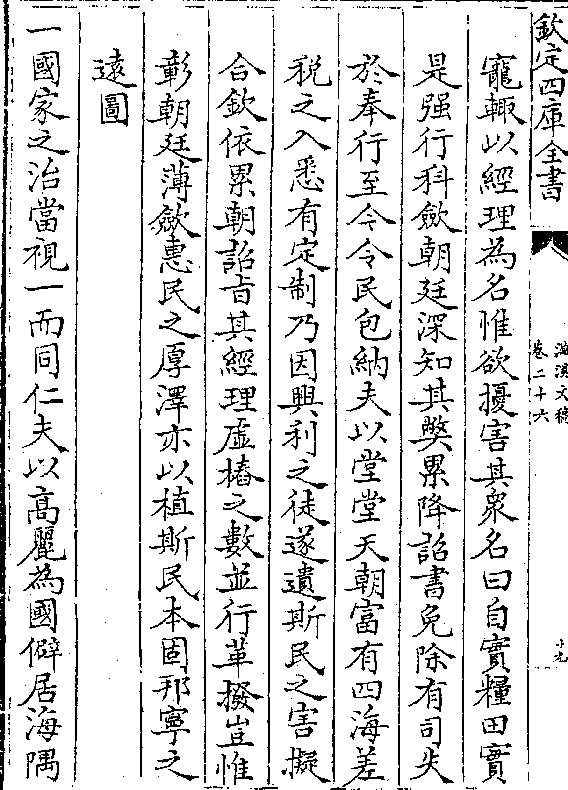 欽定四庫全書
滋溪文稿
卷二十六
十九
寵輙以經理為名惟欲擾害其衆名曰自實糧田實
是强行科歛朝廷深知其弊累降詔書免除有司失
於奉行至今令民包納夫以堂堂天朝富有四海差
税之入悉有定制乃因興利之徒遂遺斯民之害擬
合欽依累朝詔㫖其經理虚樁之數並行革撥豈惟
彰朝廷薄歛惠民之厚澤亦以植斯民本固邦寧之
逺圖
一國家之治當視一而同仁夫以髙麗為國僻居海隅